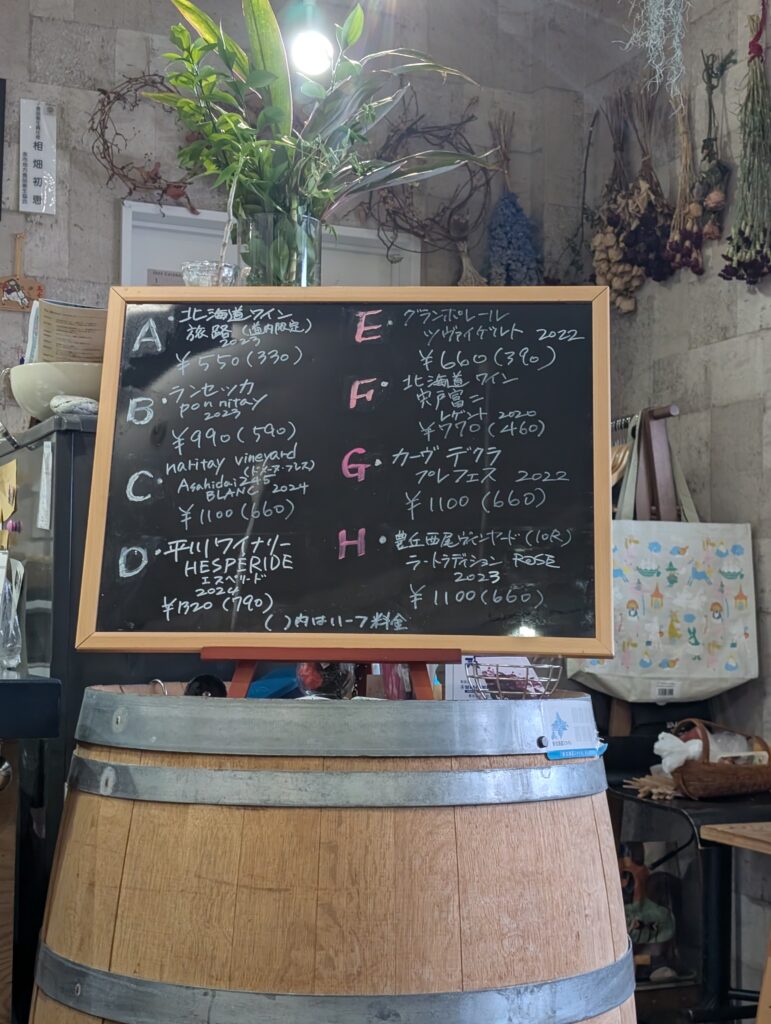 A・北海道ワイン
旅路(道内限定)
2023
¥550(330)
B・ランセッカ
pon nitay
2023
¥990(590)
C・naritay vineyard
(ドメーヌ・ブレス)
Asahidai 245
BLANC 2024
¥1100(660)
D・平川ワイナリー
HESPERIDE
エスペリード
2024
¥1320(790)
E・グランポレール
ツヴァイゲルト 2022
¥660(390)
F・北海道ワイン
宍戸富二
レゲント 2020
¥770(460)
G・カーヴデクラ
プレフェス 2022
¥1100(660)
H・豊丘西尾ヴィンヤード(10R)
ラ・トラディション ROSE
2023
¥1100(660)
( )内はハーフ料金
相畑初恵